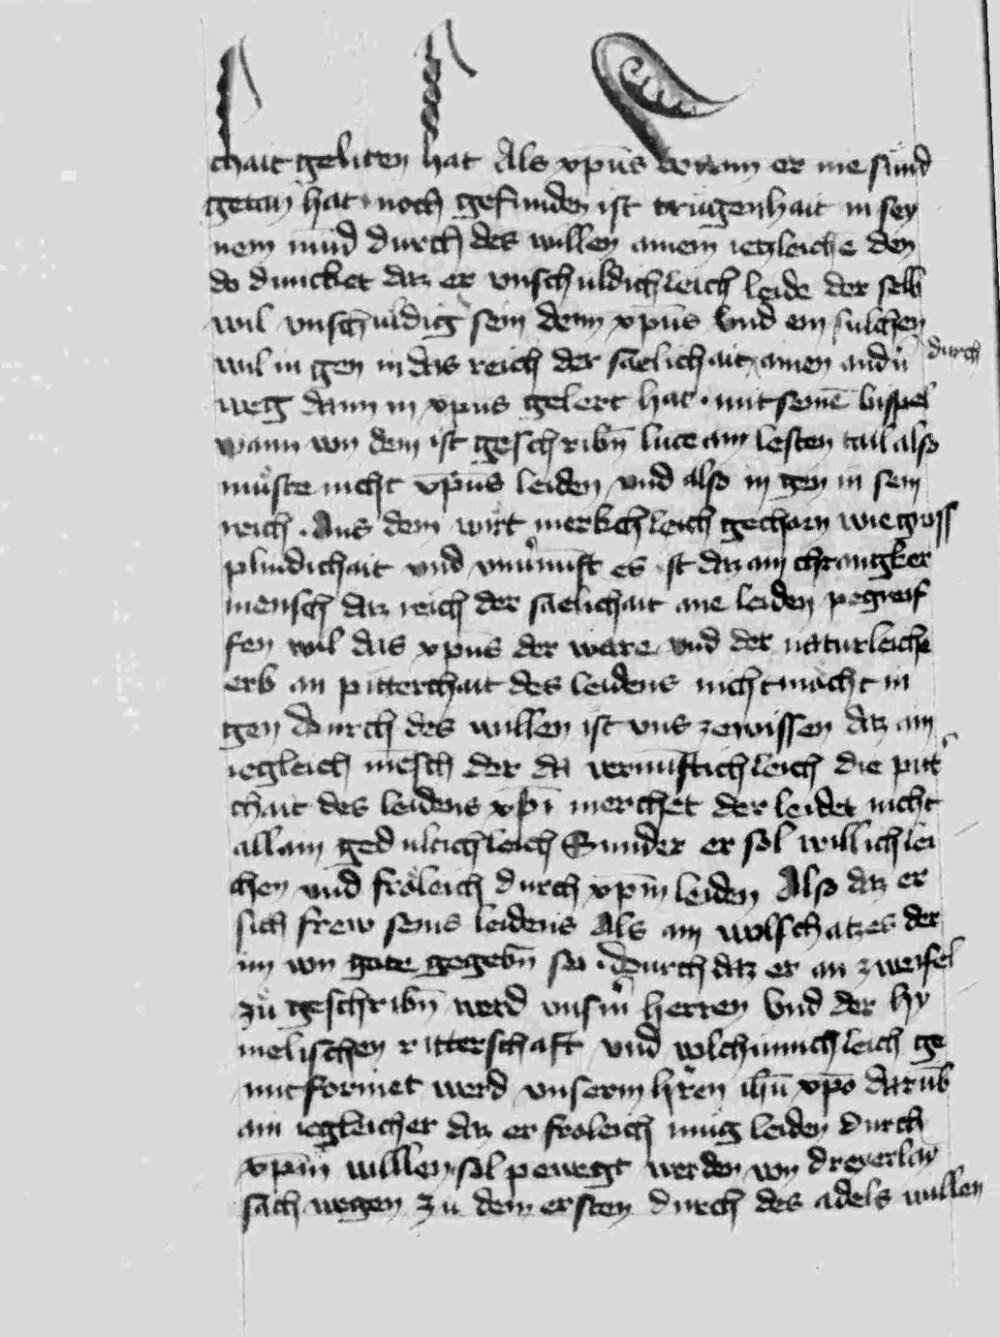 chait geliten hat Als xp̄us wann er nie sünd
getan hat noch gefunden ist trugenhait in sey
nem mund durch des willen ainem ietzleichē den
do dunchet daz er vnschuldichleich leide der selb
wil vnschuldig sein denn xp̄us Vnd ein sulchen
wil in gen in das reich der saelichait durch ainen andn̄
weg dann in xp̄us gelert hat · mit seinē bispel
wann von dem ist geschribn̄ luce am lesten tail also
müste nicht xp̄us leiden vnd also in gen in sein
reich · Aus dem wirt merkchleich gechorn wie gross
plindichait vnd vnu̓nūft es ist daz ain chrangker
mensch daz reich der saelichait ane leiden pegreif
fen wil das xp̄us der ware vnd der naturleiche
erb an pitterchait des leidens nicht mocht in
gen Durch des willen ist vns zewissen daz ain
iegleich mēsch der da vernuftichleich die pitt̓
chait des leidens xp̄i merchet der leidet nicht
allain gedultichleich Sunder er sol willichlei
chen vnd fröleich durch xp̄m leiden Also daz er
sich frew seins leidens Als ain wolschatzes der
im von gote gegebn̄ sei · Durch daz er an zweifel
zů geschribn̄ werd vnsm̓ herren Vnd der hy
melischen ritterschaft vnd volchumichleich ge
mitformet werd vnserm hr̄en ihū xp̄o darūb
ain iegleicher daz er froleich mug leiden durch
xp̄m willen sol pewegt werden von dreyerlay
sach wegen zu dem ersten durch des adels willen